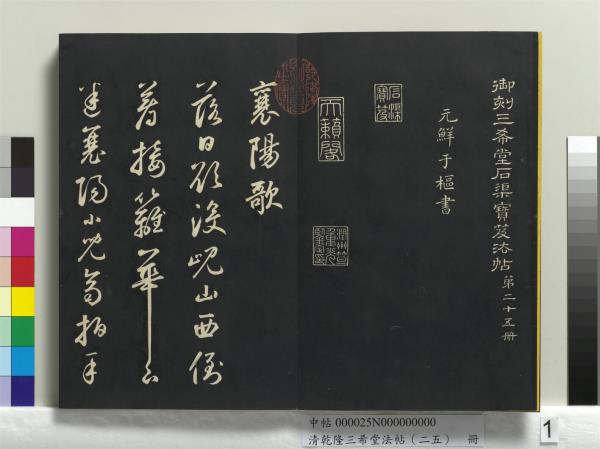 御刻三希堂石渠寶笈法帖 第二十五冊
元鮮于樞書
石渠寶笈
天籟閣
襄陽歌
落日欲沒峴山西倒
著接籬華下
迷襄陽小兒齊拍手
中帖 000025N000000000
清乾隆三希堂法帖（二五） 冊
1